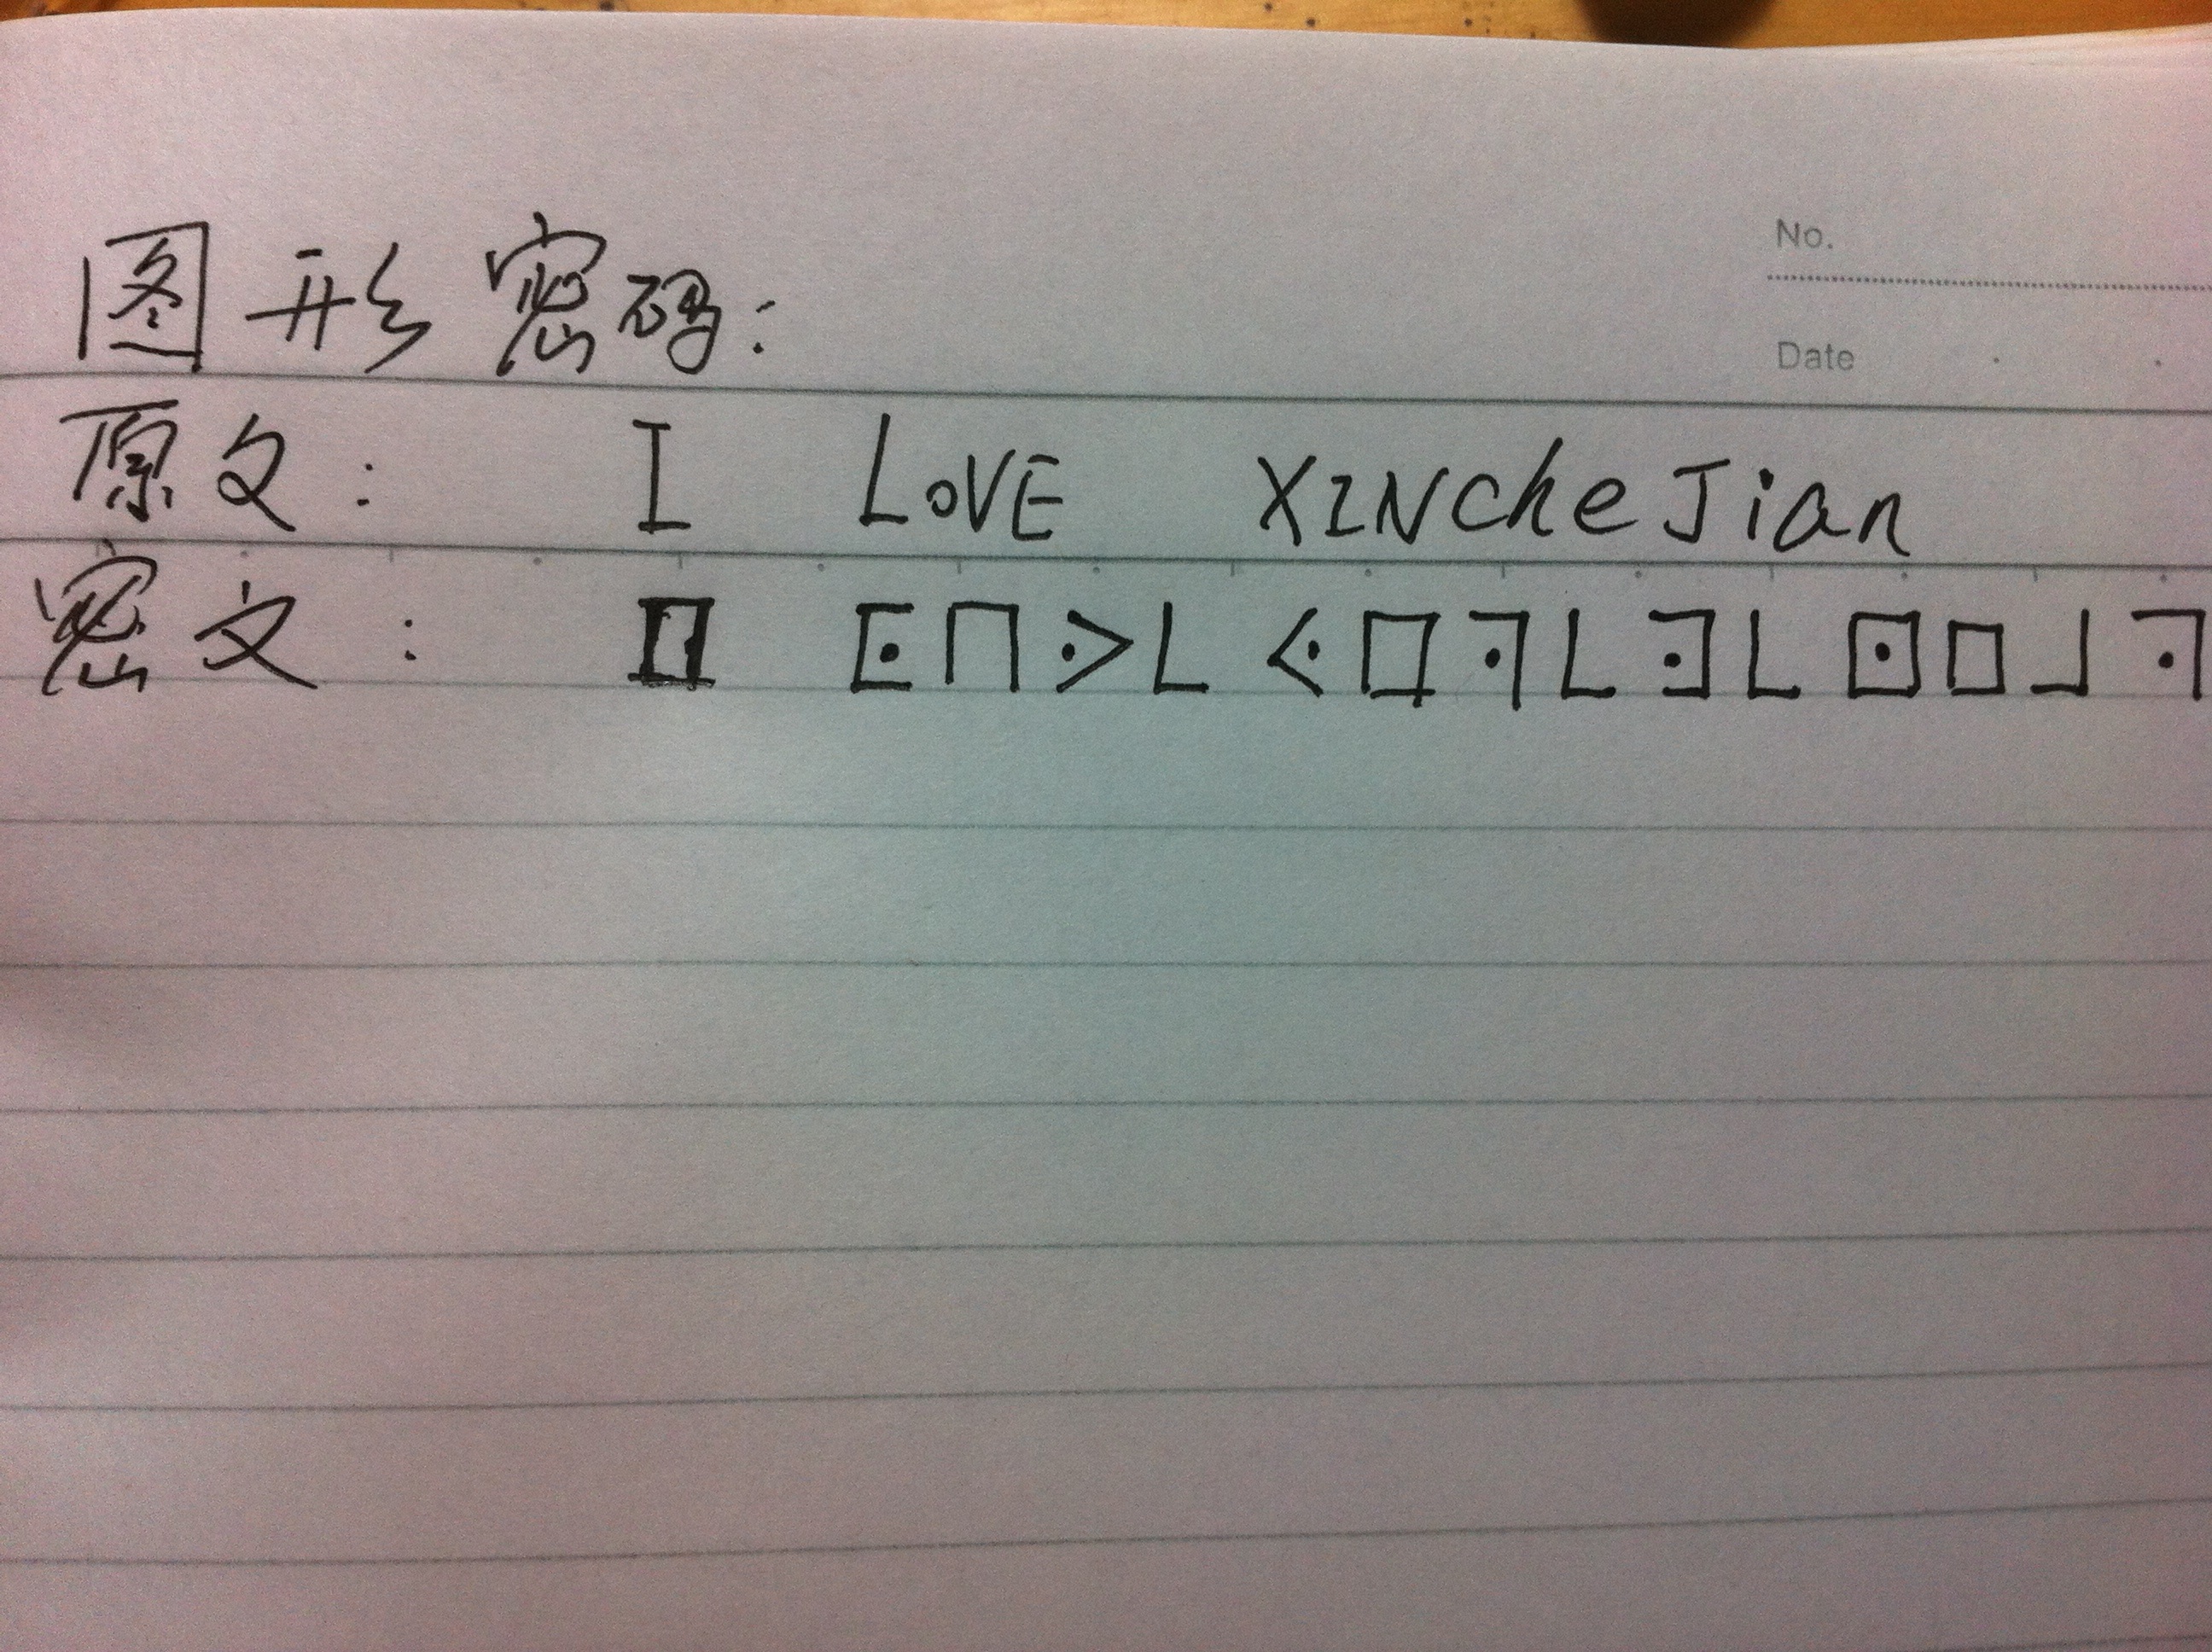 No.
Date
图形密码:
原文: I LOVE XINCheJian
密文: